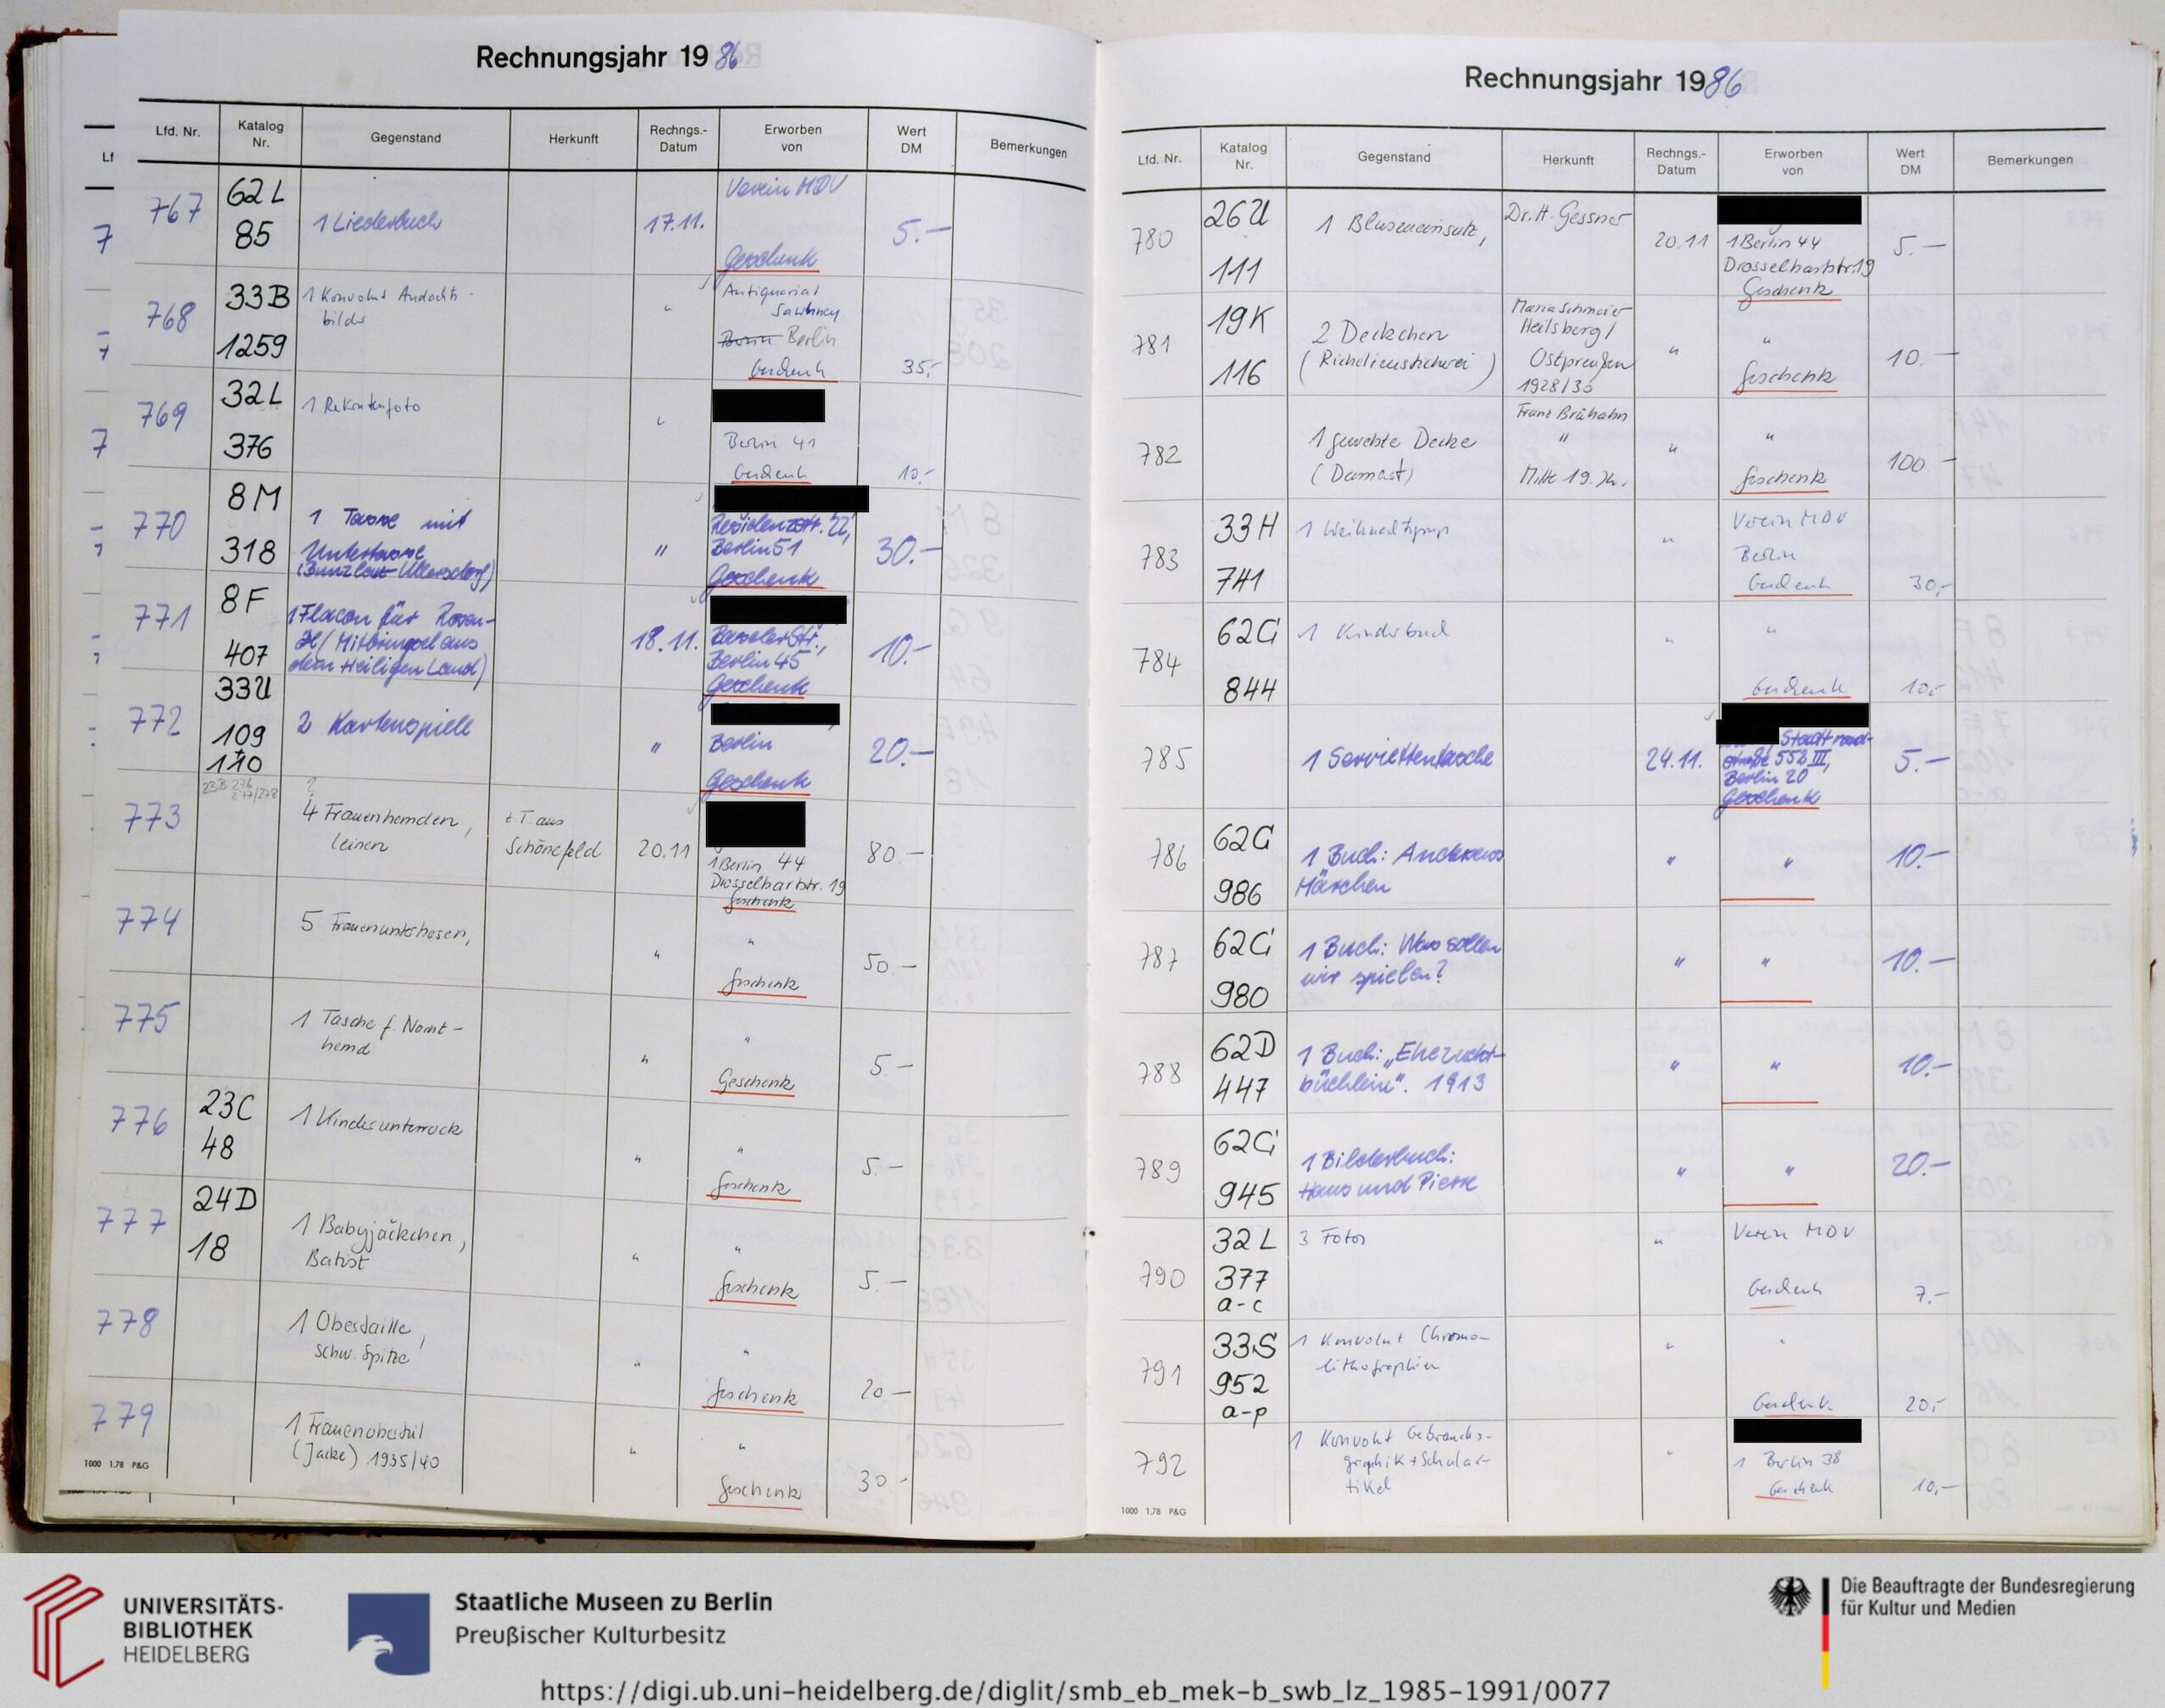 Rechnungsjahr 1986
Lfd. Nr.
Katalog Nr.
Gegenstand
Herkunft
Rechngs.-Datum
Erworben von
Wert DM
Bemerkungen
Lf
767
62L
85
1 Liederbuch
17.11.
Verein MDV
Geschenk
5.—
768
33B
1259
1 Konvolut Andachts-
bilder
"
Antiquariat
Sawhney
Berlin
Geschenk
35,-
769
32L
376
1 Rekrutenfoto
"
Berlin 41
Geschenk
10.-
770
8M
318
1 Tasse mit
Untertasse
(Bunzlau Ullersdorf)
"
Residenzstr. 22,
Berlin 51
Geschenk
30.—
771
8F
407
1 Flacon für Rosen-
öl (Mitbringsel aus
dem Heiligen Land)
18.11.
Baseler Str.,
Berlin 45
Geschenk
10.—
772
33U
109
+
110
2 Kartenspiele
"
Berlin
Geschenk
20.—
773
23B 276
277/278
?
4 Frauenhemden,
Leinen
z.T. aus
Schönefeld
20.11
1 Berlin 44
Drosselbartstr. 19
Geschenk
80.—
774
5 Frauenunterhosen,
"
"
Geschenk
50.—
775
1 Tasche f. Nacht-
hemd
"
"
Geschenk
5.—
776
23C
48
1 Kinderunterrock
"
"
Geschenk
5.—
777
24D
18
1 Babyjäckchen,
Batist
"
"
Geschenk
5.—
778
1 Obertaille,
schw. Spitze
"
"
Geschenk
20.—
779
1 Frauenoberteil
(Jacke) 1935/40
"
"
Geschenk
30.-
1000 1.78 P&G
Rechnungsjahr 1986
Lfd. Nr.
Katalog Nr.
Gegenstand
Herkunft
Rechngs.-Datum
Erworben von
Wert DM
Bemerkungen
780
26U
111
1 Bluseneinsatz,
Dr. H. Gessner
20.11
1 Berlin 44
Drosselbartstr. 19
Geschenk
5.—
781
19K
116
2 Deckchen
(Richelieustickerei)
Maria Schmeier
Heilsberg/
Ostpreußen
1928/30
"
"
Geschenk
10.—
782
1 gewebte Decke
(Damast)
Franz Brühahn
"
Mitte 19. Jh.
"
"
Geschenk
100 —
783
33H
741
1 Weihnachtskrippe
"
Verein MDV
Berlin
Geschenk
30,-
784
62G
844
1 Kinderbuch
"
"
Geschenk
10,-
785
1 Serviettentasche
24.11.
Stadtrand-
straße 552 III,
Berlin 20
Geschenk
5.—
786
62G
986
1 Buch: Andersens
Märchen
"
"
10.—
787
62G
980
1 Buch: Was sollen
wir spielen?
"
"
10.—
788
62D
447
1 Buch: „Ehezucht-
büchlein". 1913
"
"
10.—
789
62G
945
1 Bilderbuch:
Hans und Pierre
"
"
20.—
790
32L
377
a-c
3 Fotos
"
Verein MDV
Geschenk
7.-
791
33S
952
a-p
1 Konvolut Chromo-
lithographien
"
"
Geschenk
20,-
792
1 Konvolut Gebrauchs-
graphik + Schular-
tikel
"
1 Berlin 38
Geschenk
10,-
1000 1.78 P&G
UNIVERSITÄTS-
BIBLIOTHEK
HEIDELBERG
Staatliche Museen zu Berlin
Preußischer Kulturbesitz
Die Beauftragte der Bundesregierung
für Kultur und Medien
https://digi.ub.uni-heidelberg.de/diglit/smb_eb_mek-b_swb_lz_1985-1991/0077